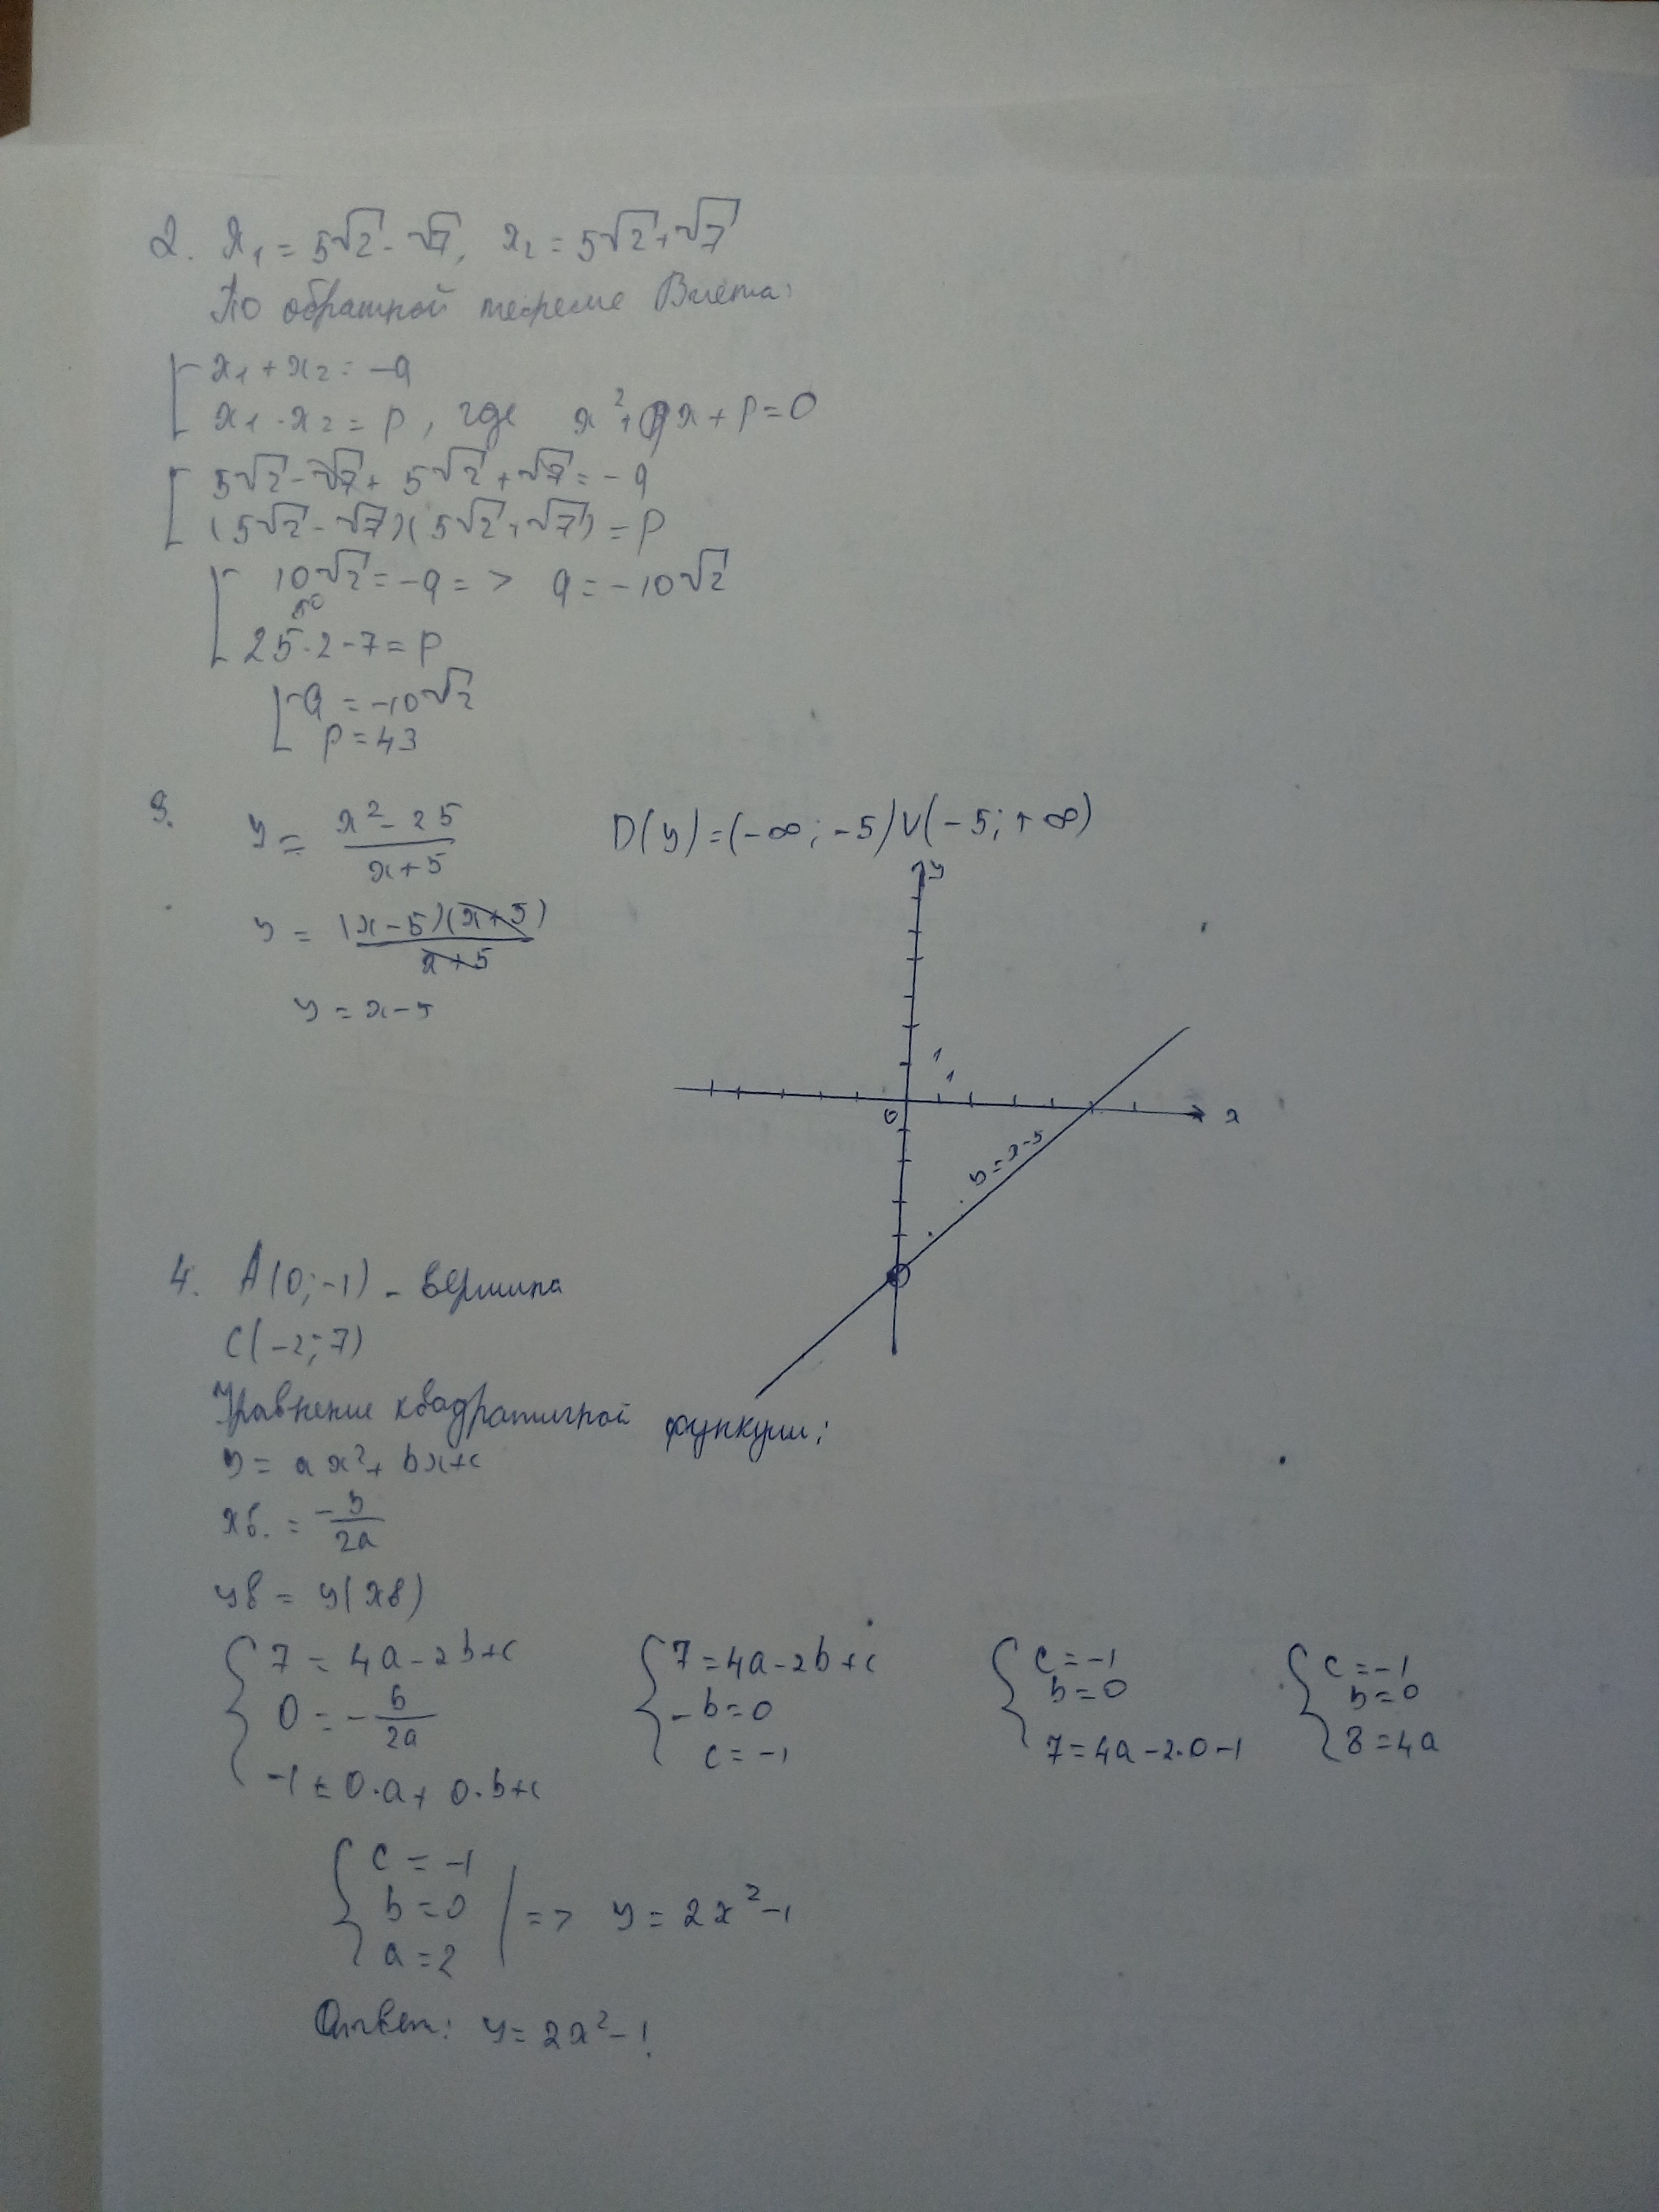 2. x₁ = 5√2 - √7, x₂ = 5√2 + √7
По обратной теореме Виета:
[ x₁ + x₂ = -q
x₁ · x₂ = p, где x² + qx + p = 0
[ 5√2 - √7 + 5√2 + √7 = -q
(5√2 - √7)(5√2 + √7) = p
[ 10√2 = -q => q = -10√2
50
25·2 - 7 = p
[ q = -10√2
p = 43
3. y = (x² - 25)/(x + 5) D(y) = (-∞; -5)∪(-5; +∞)
y = (x - 5)(x + 5)/(x + 5)
y = x - 5
y
1
1
0
x
y = x - 5
4. A(0; -1) - вершина
C(-2; 7)
Уравнение квадратичной функции:
y = ax² + bx + c
xв. = -b/2a
yв = y(xв)
{ 7 = 4a - 2b + c
0 = -b/2a
-1 = 0·a + 0·b + c
{ 7 = 4a - 2b + c
-b = 0
c = -1
{ c = -1
b = 0
7 = 4a - 2·0 - 1
{ c = -1
b = 0
8 = 4a
{ c = -1
b = 0
a = 2
| => y = 2x² - 1
Ответ: y = 2x² - 1.